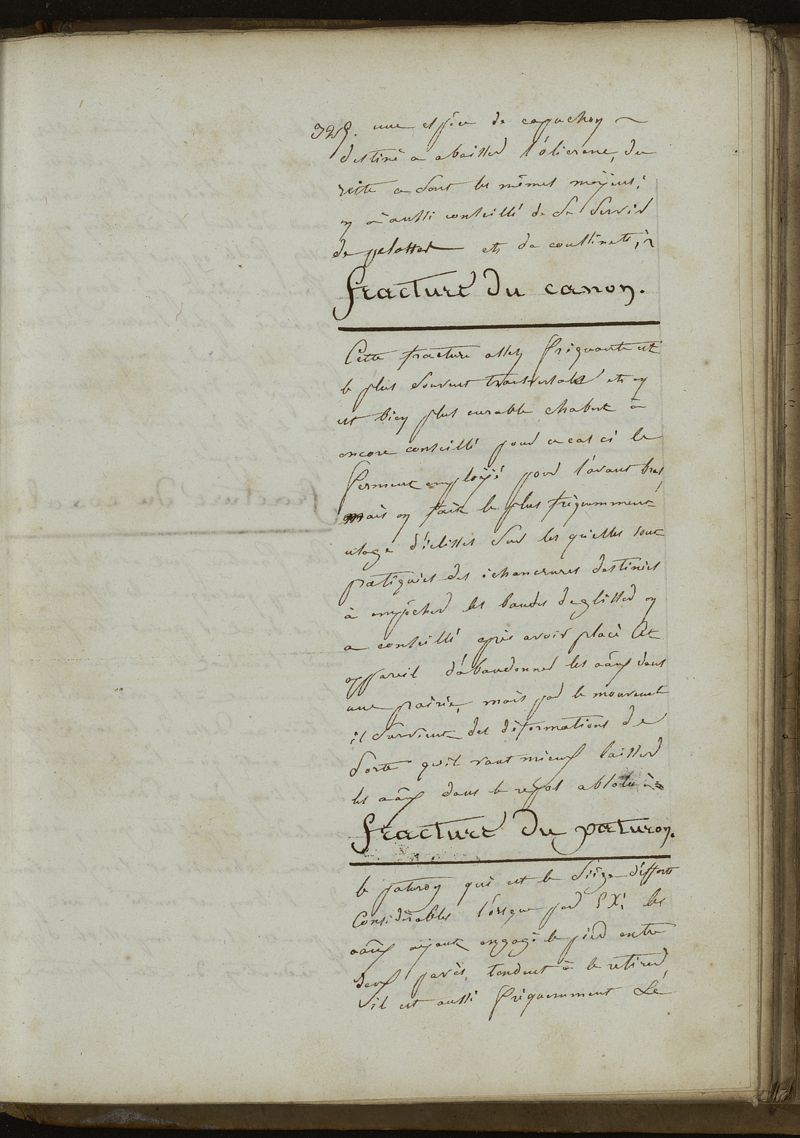 325. une espèce de capuchon ~
destiné a abaisser l'olicrane, du
reste ce sont les mêmes moyens;
on à aussi conseillé de se servir
de pelottes et de coussinets;
fracture du canon.
Cette fracture assez fréquente est
le plus souvent transversale et on
est bien plus curable chabert à
encore conseillé pour ce cas ci le
ferrement employé pour l'avant bras,
mais on fait le plus fréquemment
usage d'éclisses sur les quelles sont
pratiquées des échancrures destinées
à empêcher les bandes de glisser on
a conseillé après avoir placé cet
appareil d'abandonner les aãux dans
une prairie, mais par le mouvement
il survient des déformations de
sorte qu'il vaut mieux laisser
les aãux dans le repos absolu
fracture du paturon.
le paturon qui est le siège d'efforts
Considérables lorsque par EX: les
aãux ayant engagé le pied entre
deux pavés, tendent à le retirer
il est aussi fréquemment Le